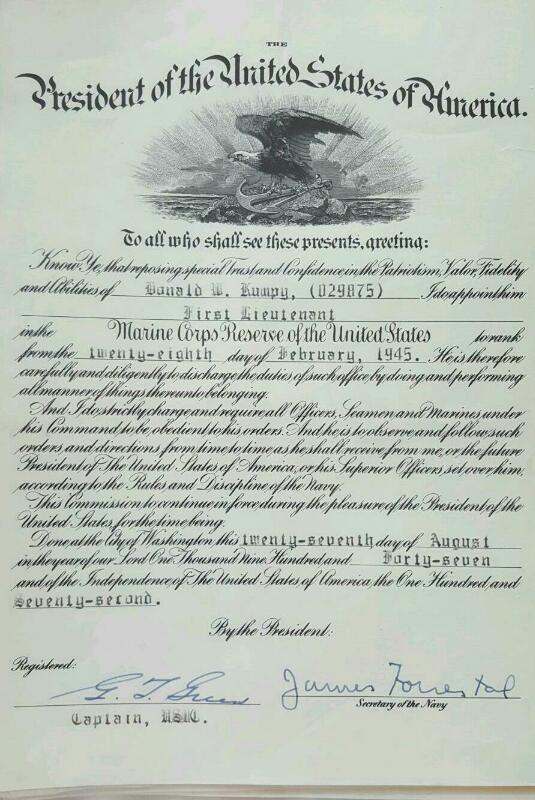 THE
President of the United States of America.
To all who shall see these presents, greeting:
Know Ye, that reposing special Trust and Confidence in the Patriotism, Valor, Fidelity
and Abilities of Donald W. Rumpy, (029875) I do appoint him
First Lieutenant
in the Marine Corps Reserve of the United States to rank
from the twenty-eighth day of February, 1945. He is therefore
carefully and diligently to discharge the duties of such office by doing and performing
all manner of things thereunto belonging.
And I do strictly charge and require all Officers, Seamen and Marines under
his Command to be obedient to his orders. And he is to observe and follow such
orders and directions from time to time as he shall receive from me, or the future
President of The United States of America, or his Superior Officers set over him,
according to the Rules and Discipline of the Navy.
This Commission to continue in force during the pleasure of the President of the
United States, for the time being.
Done at the City of Washington this twenty-seventh day of August
in the year of our Lord One Thousand Nine Hundred and Forty-seven
and of the Independence of The United States of America, the One Hundred and
Seventy-second.
By the President:
Registered:
G. T. Green James Forrestal
Secretary of the Navy
Captain, USMC.